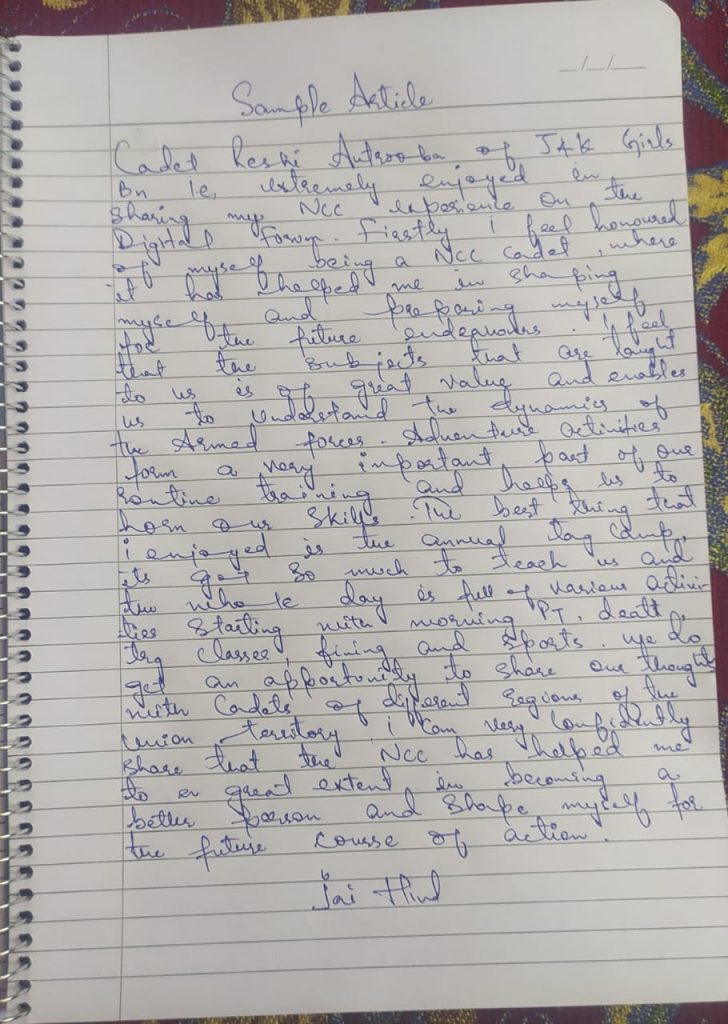 _/_/__
Sample Article
Cadet Reshi Autrooba of J&K Girls
Bn is, extremely enjoyed in
sharing my NCC experience on the
Digital Forum. Firstly i feel honoured
of myself being a NCC cadet, where
it has helped me in shaping
myself and preparing myself
for the future endeavours. I feel
that the subjects that are taught
to us is of great value and enables
us to understand the dynamics of
the Armed forces. Adventure activities
form a very important part of our
routine training and helps us to
horn our skills. The best thing that
i enjoyed is the annual trg camp,
its got so much to teach us and
the whole day is full of various activi-
ties starting with morning PT, drill,
trg classes, firing and sports. We do
get an opportunity to share our thoughts
with Cadets of different regions of the
Union territory, i can very confidently
share that the NCC has helped me
to a great extent in becoming a
better person and shape myself for
the future course of action.
Jai Hind